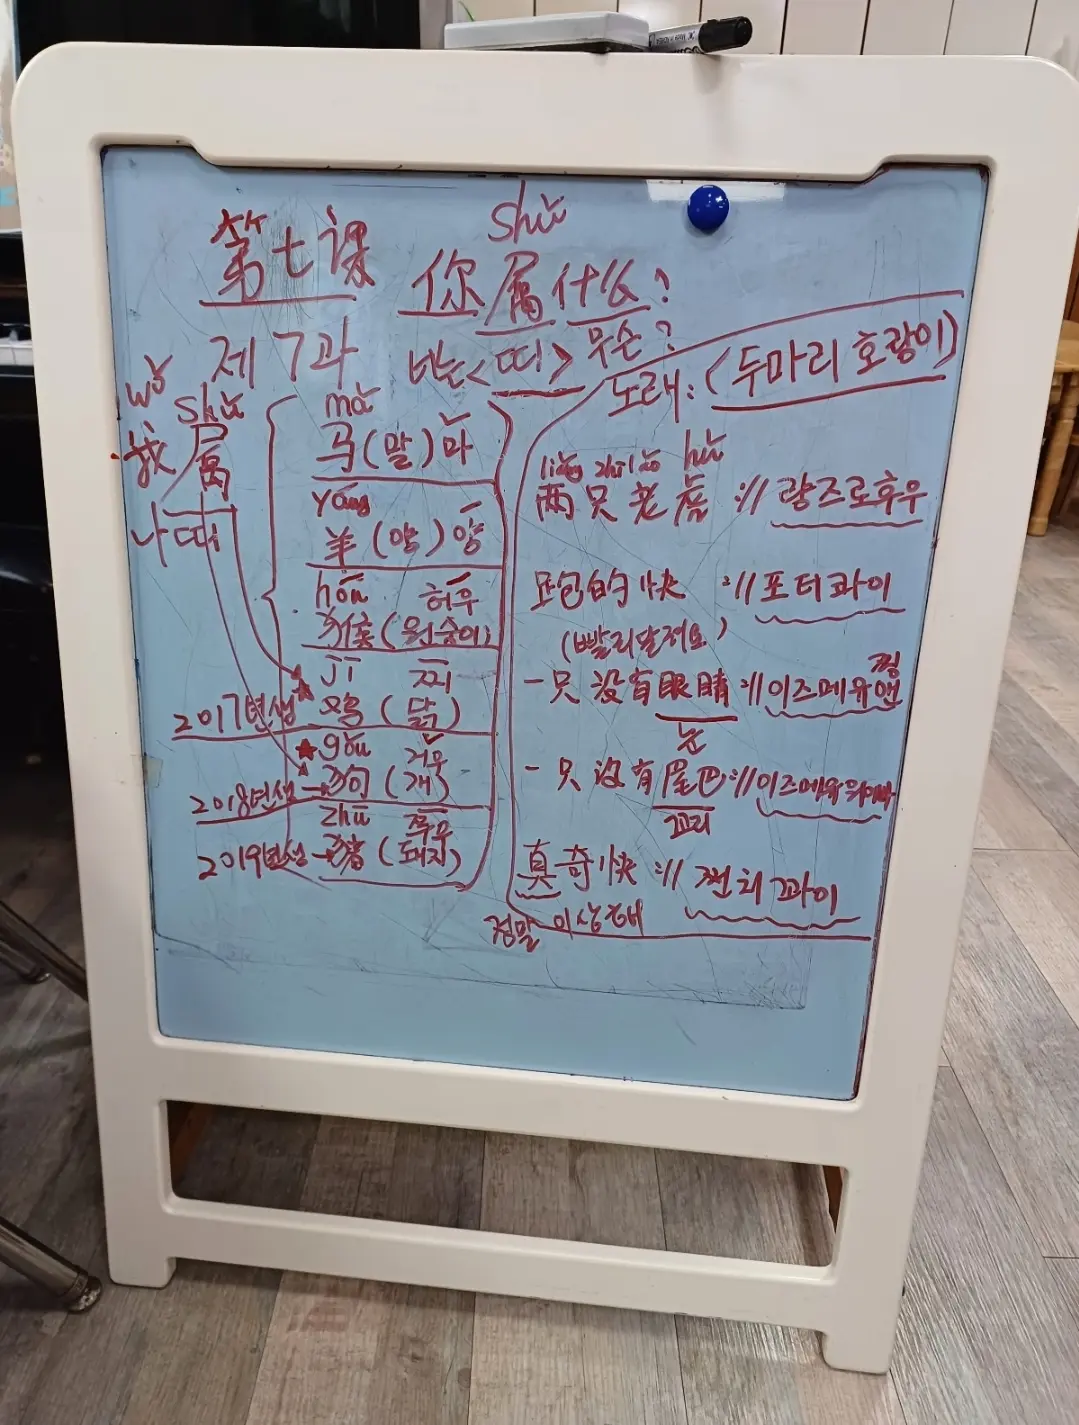 第七课
shǔ
你属什么?
제 7과
너는<띠> 무슨?
wǒ shǔ
我 属
나 띠
mǎ
马(말)마
yáng
羊(양)양
hóu 허우
猴(원숭이)
jī 찌
2017년생 鸡(닭)
★gǒu 거우
2018년생→狗(개)
zhū 쭈우
2019년생→猪(돼지)
노래:(두마리 호랑이)
liǎng zhī lǎo hǔ
两 只 老 虎 :// 량즈로후우
跑的快 :// 포터콰이
(빨리달려요)
一只 没有眼睛 :// 이즈메유
눈
一 只 没有尾巴 :// 이즈메유
꼬리
真奇快 :// 쩐치꽈이
정말 이상해